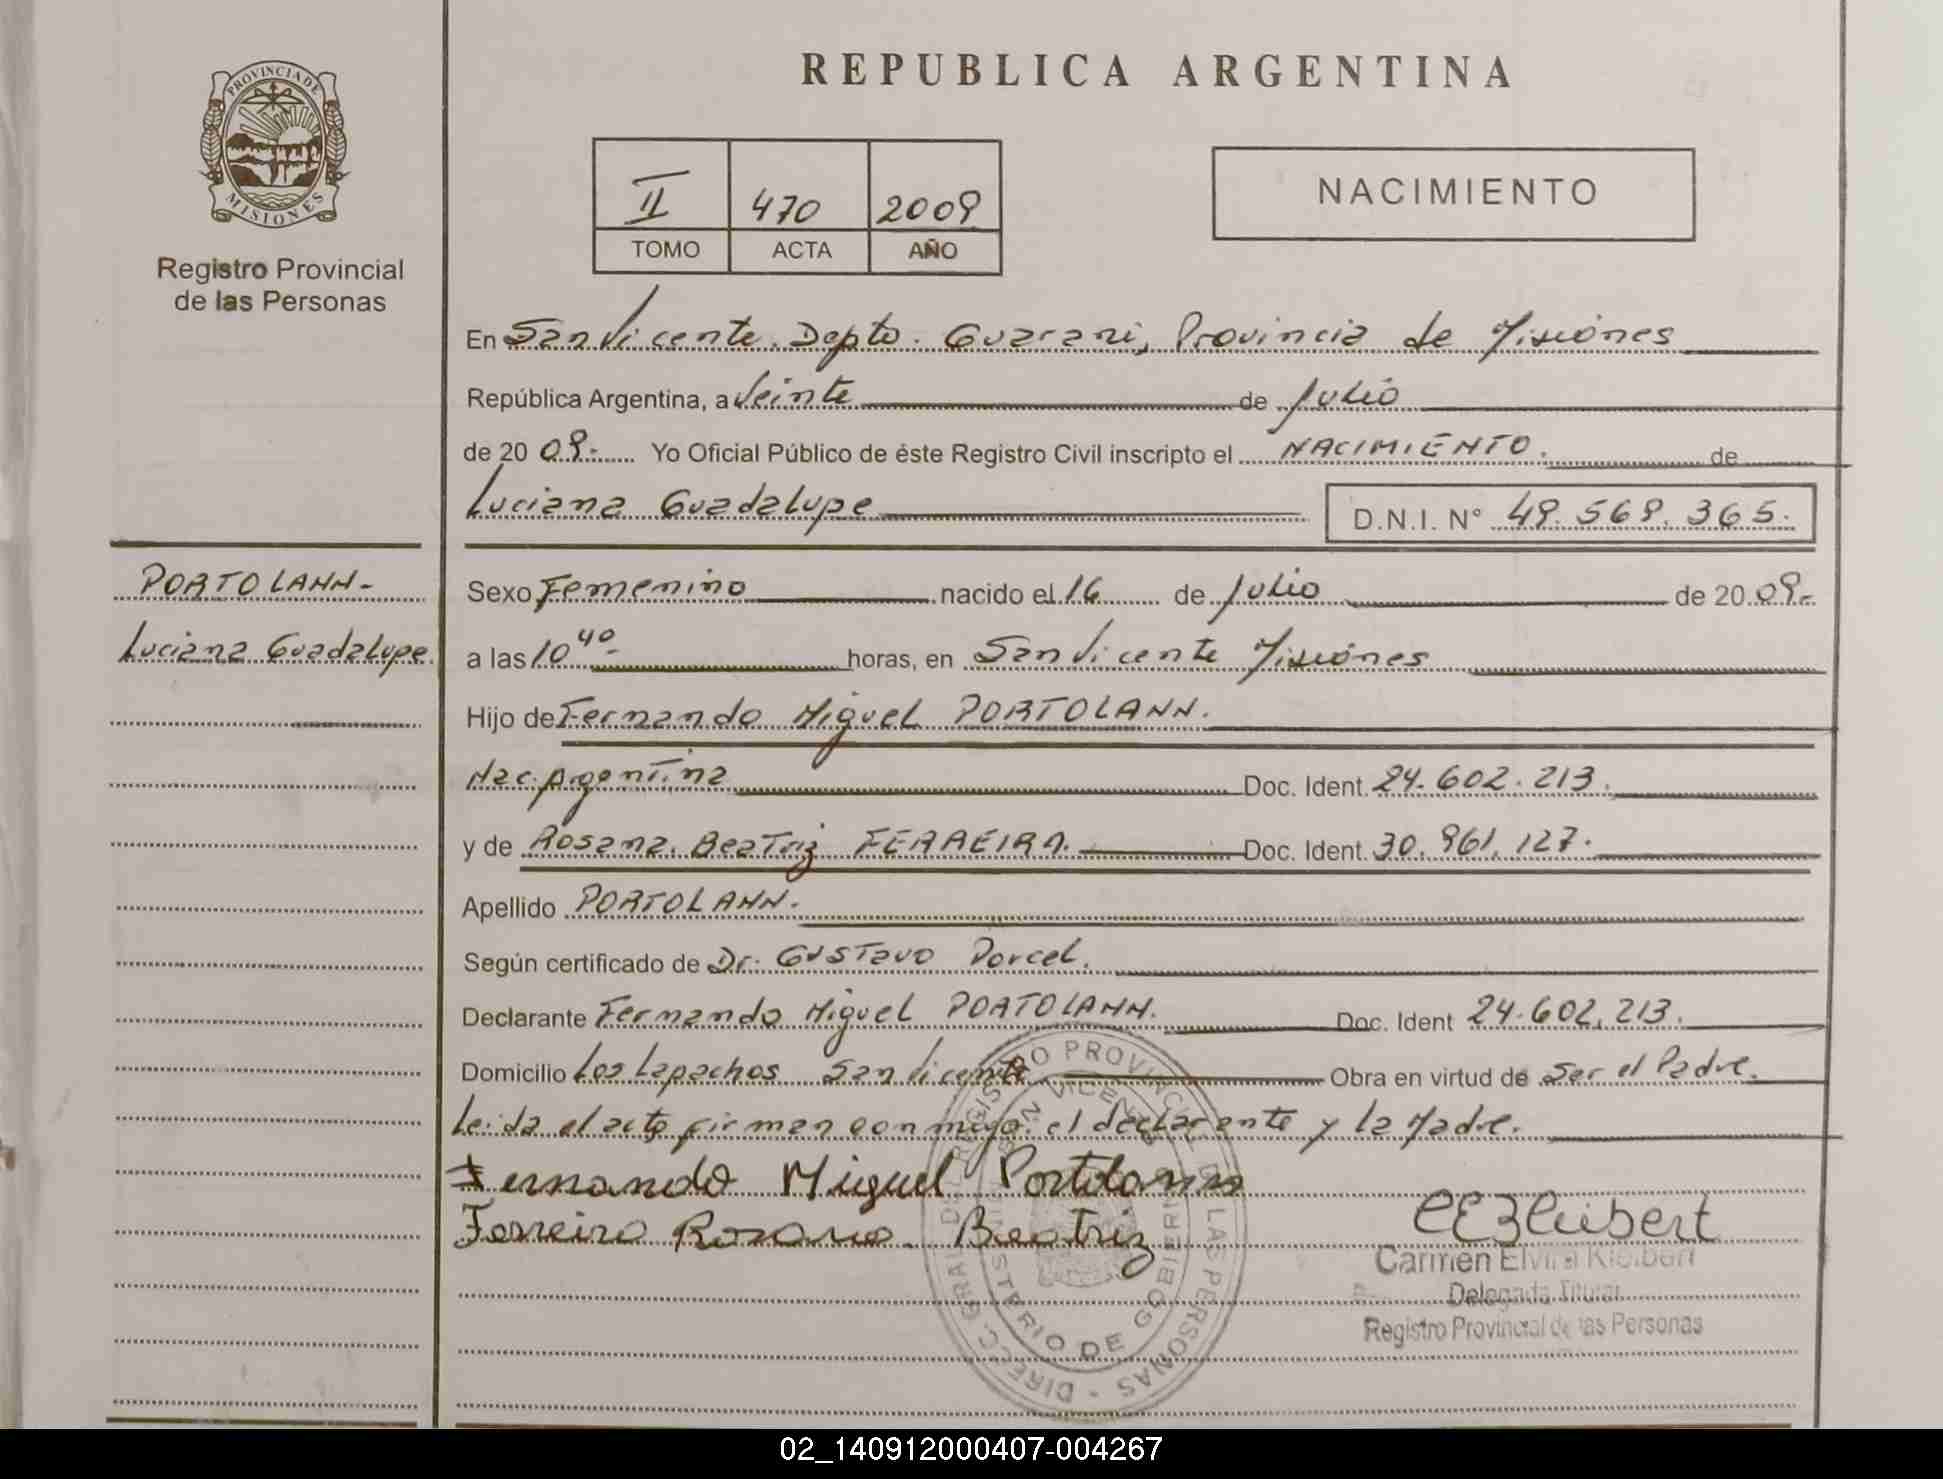 REPUBLICA ARGENTINA
PROVINCIA DE
MISIONES
Registro Provincial
de las Personas
II 470 2009
TOMO ACTA AÑO
NACIMIENTO
En San Vicente. Depto. Guarani, Provincia de Misiónes
República Argentina, a Veinte de Julio
de 20 09.- Yo Oficial Público de éste Registro Civil inscripto el NACIMIENTO. de
Luciana Guadalupe D.N.I. N° 49.569.365.
PORTOLANN-
Luciana Guadalupe.
Sexo Femenino nacido el 16 de Julio de 20 09.-
a las 10 40- horas, en San Vicente Misiónes
Hijo de Fernando Miguel PORTOLANN.
Nac. Argentina Doc. Ident. 24.602.213.
y de Rosana Beatriz FERREIRA. Doc. Ident. 30.961.127.
Apellido PORTOLANN.
Según certificado de Dr. Gustavo Porcel.
Declarante Fernando Miguel PORTOLANN. Doc. Ident 24.602.213.
Domicilio Los Lapachos San Vicente Obra en virtud de Ser el Padre.
Leida el acta firman conmigo. el declarante y la Madre.
Fernando Miguel Portolann
Ferreira Rosana Beatriz
Carmen Elvira Kleibert
Delegada Titular
Registro Provincial de las Personas
DIRECC. GRAL. DEL REGISTRO PROVINCIAL DE LAS PERSONAS -
SAN VICENTE
MINISTERIO DE GOBIERNO
02_140912000407-004267